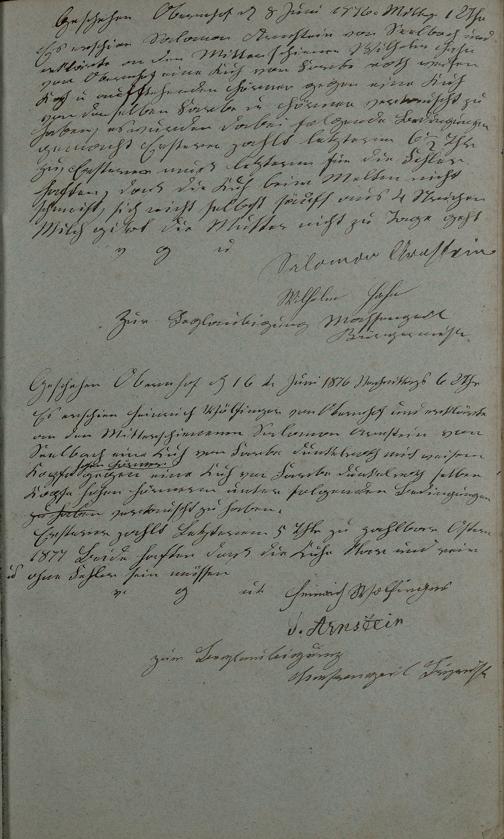 Geschehen Obernhof d 8 Juni 1876 Mittag 1 Uhr
Es erschien Salomon Arnstein von Seelbach und
erklärte an den Miterschienenen Wilhelm Hahn
von Obernhof eine Kuh von Farbe roth weisen
Kopf u aufstehenden Hörner gegen eine Kuh
von derselben Farbe u Hörner vertauscht zu
haben, es wurden dabei folgende Bedingungen
gemacht Ersterer zahlt letzterem 6½ Thr
zu, Ersterer muß letzterem für die Fehler
haften, daß die Kuh beim Melken nicht
schmeist, sich nicht selbst sauft aus 4 Strichen
Milch gibt die Mutter nicht zu Tage geht
v g u
Salomon Arnstein
Wilhelm Hahn
Zur Beglaubigung
Bürgermeister
Geschehen Obernhof d 16 te Juni 1876 Nachmittags 6 Uhr
Es erschien Heinrich Wölfinger von Obernhof und erklärte
an den Miterschienenen Salomon Arnstein von
Seelbach eine Kuh von Farbe dunkelroth mit weisem
hohen Hörner
Kopfe gegen eine Kuh von Farbe dunkelroth selben
Kopfe hohen Hörnern unter folgenden Bedingungen
zu haben vertauscht zu haben.
Ersterer zahlt Letzterem 5 Thr zu zahlbar Ostern
1877 Beide haften daß die Kühe klar und rein
und ohne Fehler sein müssen
v g u
Heinrich Wölfinger
S. Arnstein
zur Beglaubigung